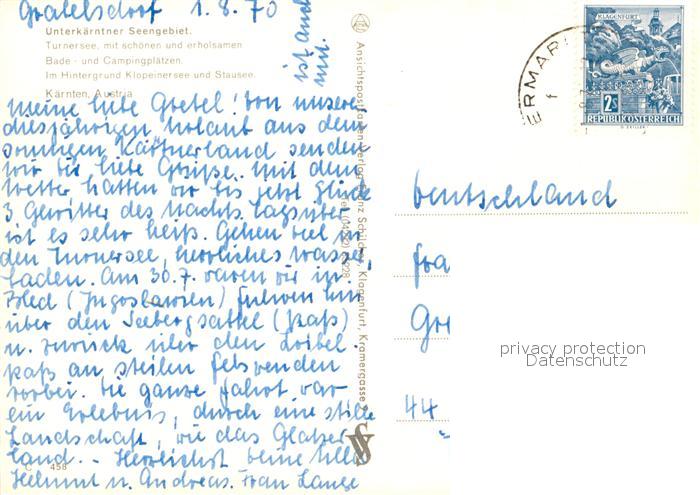 Grabelsdorf 1.8.70
ist auch
mit.
Unterkärntner Seengebiet.
Turnersee, mit schönen und erholsamen
Bade- und Campingplätzen.
Im Hintergrund Klopeinersee und Stausee.
Kärnten, Austria
Meine liebe Gretel! Von unserem
diesjährigen Urlaub aus dem
sonnigen Kärtnerland senden
wir die liebe Grüße. Mit dem
Wetter hatten wir bis jetzt Glück
3 Gewitter des Nachts. Tagsüber
ist es sehr heiß. Gehen viel in
den Turnersee, herrliches Wasser,
baden. Am 30.7. waren wir in
Bled (Jugoslawien) fuhren hin
über den Seebergsattel (Paß)
u. zurück über den Loibl-
paß an steilen Felswenden
vorbei. Die ganze Fahrt war
ein Erlebnis, durch eine stille
Landschaft, wie das Glatzer
land. - Herzlichst Deine
Helmut u. Andreas. Frau Lange
C 458
Ansichtspostkartenverlag Franz Schilcher, Klagenfurt, Kramergasse
KLAGENFURT
2S
REPUBLIK ÖSTERREICH
ERMAR
Deutschland
Fra
Gre
44
privacy protection
Datenschutz